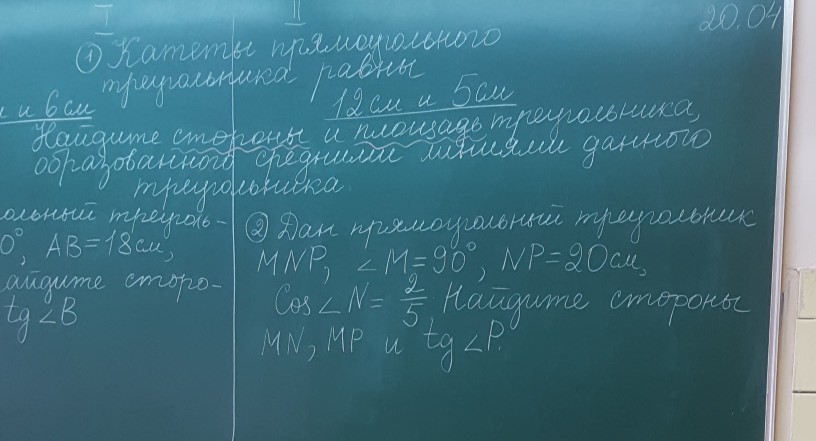 I II 20.04
① Катеты прямоугольного
треугольника равны
и 6 см 12 см и 5 см
Найдите стороны и площадь треугольника,
образованного средними линиями данного
треугольника.
ольный треуголь-
0°, AB=18см,
айдите сторо-
tg∠B
② Дан прямоугольный треугольник
MNP, ∠M=90°, NP=20см,
Cos∠N= 2/5. Найдите стороны
MN, MP и tg∠P.